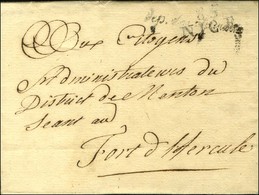 Aux Citoyens
Administrateurs du
District de Menton
Seant au
Fort d'Hercule